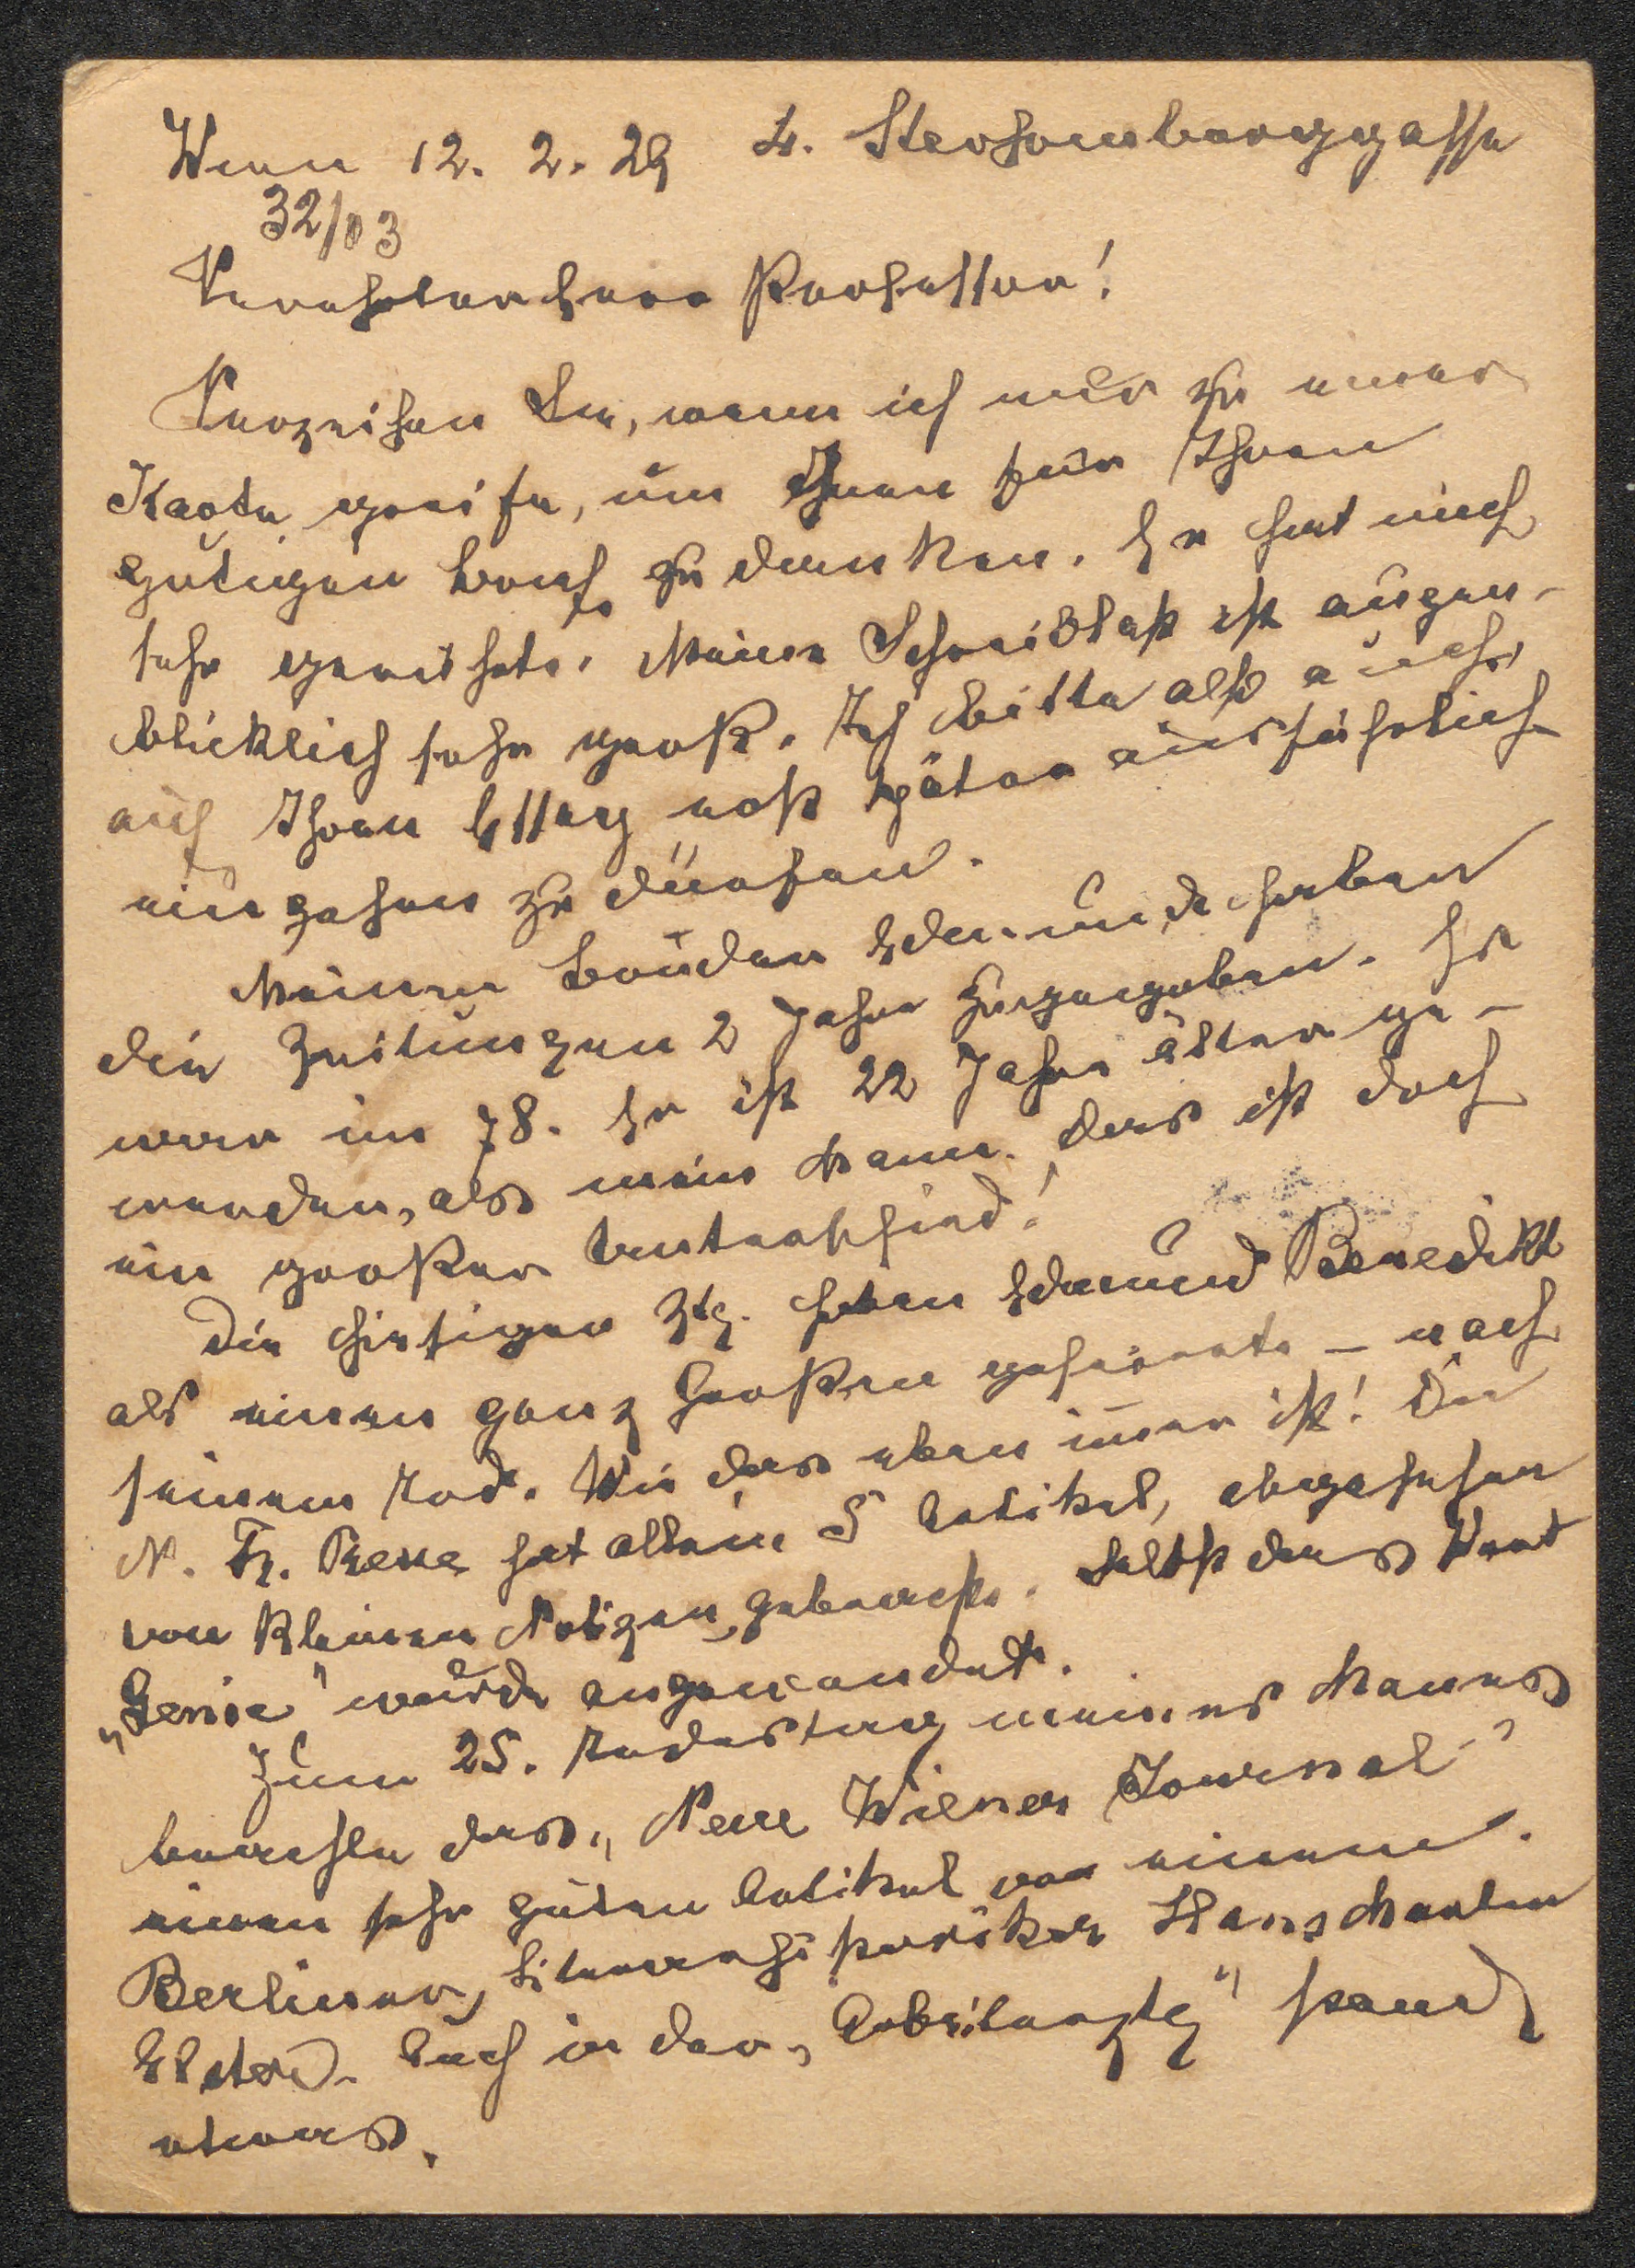 Wien 12. 2. 29 4. Starhemberggasse
32/13
Verehrter Herr Professor!
Verzeihen Sie, wenn ich nur zu einer
Karte greife, um Ihnen für Ihren
gütigen Brief zu danken. Er hat mich
sehr gerührt. Meine Schreiblast ist augen-
blicklich sehr groß. Ich bitte also auch,
auf Ihren Essay erst später ausführlich
eingehen zu dürfen.
Meinem Bruder Edmund haben
die Zeitungen 2 Jahre zugegeben. Er
war im 78. Er ist 22 Jahre älter ge-
worden, als mein Mann. Das ist doch
ein großer Unterschied!
Die hiesigen Ztg. haben Edmund Benedikt
als einen ganz Großen gefeiert – nach
seinem Tod. Wie das eben immer ist! Die
N. Fr. Presse hat allein 5 Artikel, abgesehen
von kleinen Notizen, gebracht. Selbst das Wort
„Genie" wurde angewendet.
Zum 25. Todestag meines Mannes
brachte das „Neue Wiener Journal"
einen sehr guten Artikel von einem
Berliner Literarhistoriker Hans Martin
Elster. Auch in der „Arbeiterztg" stand
etwas.